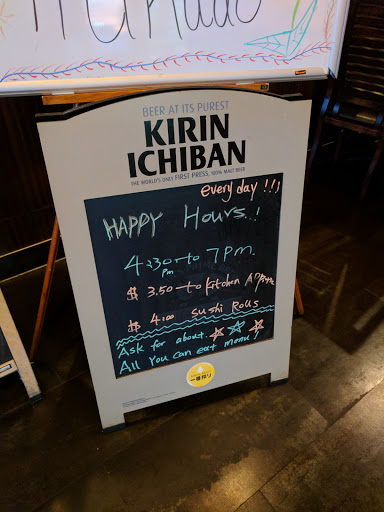 BEER AT ITS PUREST
KIRIN
ICHIBAN
THE WORLD'S ONLY FIRST PRESS, 100% MALT BEER
every day !!!
HAPPY Hours.!
4:30 to 7 pm.
pm
$ 3.50 to Kitchen
$ 4.00 Sushi Rolls
Ask for about.
All You can eat menu!
一番搾り